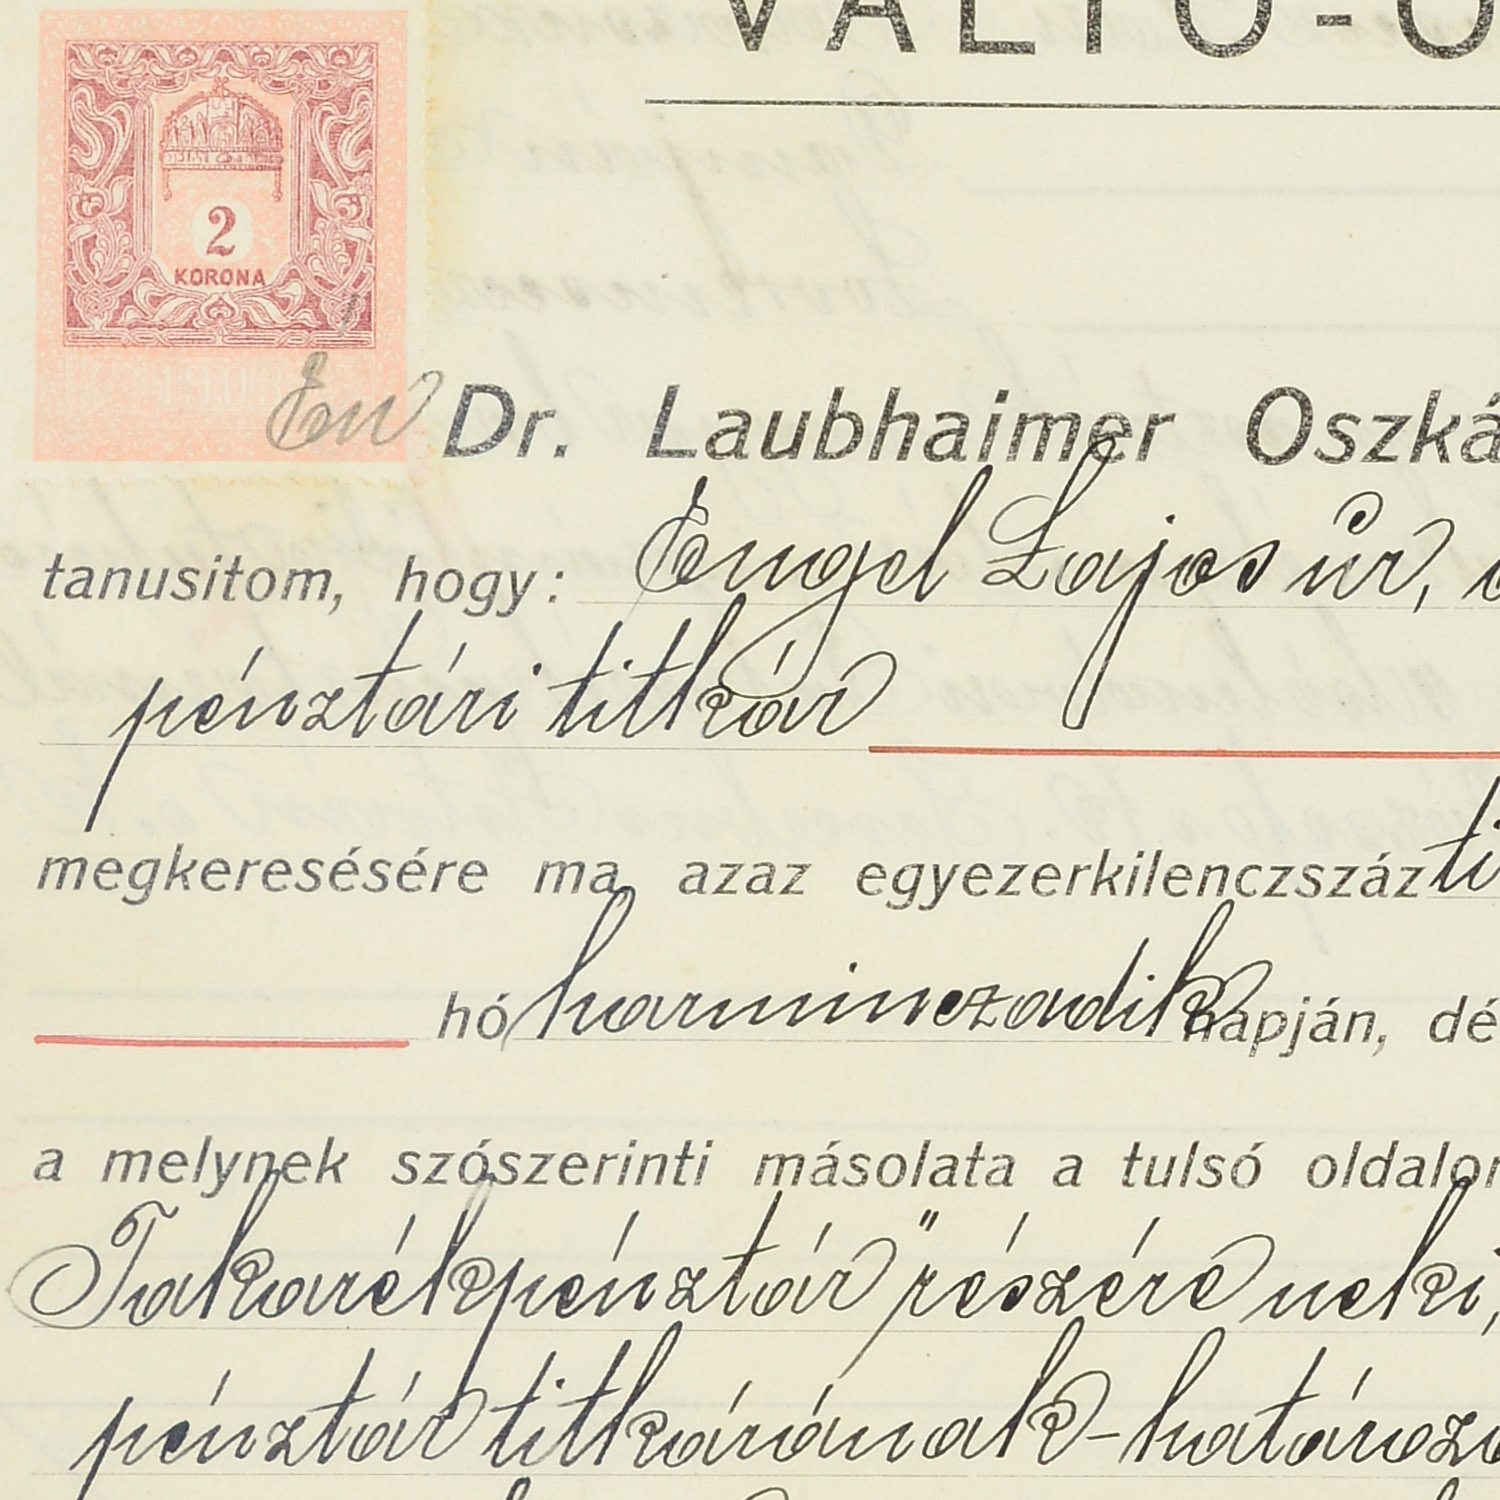 VÁLTÓ-Ó
2
KORONA
Én Dr. Laubhaimer Oszká
tanusitom, hogy: Engel Lajos úr, a
pénztári titkár
megkeresésére ma, azaz egyezerkilenczszázti
hó harminczadik napján, dé
a melynek szószerinti másolata a tulsó oldalon
Takarékpénztár" részére neki,
pénztár titkárának-határozo